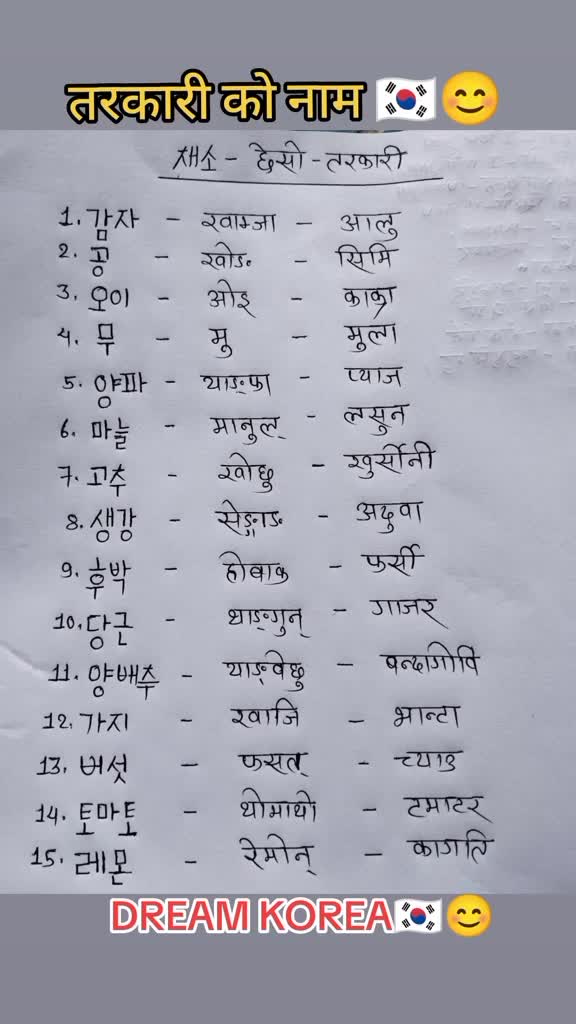 तरकारी को नाम 🇰🇷😊
채소 - छेसो - तरकारी
1. 감자 - खाम्जा - आलु
2. 콩 - खोङ - सिमि
3. 오이 - ओइ - काक्रा
4. 무 - मु - मुला
5. 양파 - याङ्फा - प्याज
6. 마늘 - मानुल् - लसुन
7. 고추 - खोछु - खुर्सानी
8. 생강 - सेङ्गाङ - अदुवा
9. 홍박 - होबाक - फर्सी
10. 당근 - थाङ्गुन् - गाजर
11. 양배추 - याङ्बेछु - बन्दागोपि
12. 가지 - खाजि - भान्टा
13. 버섯 - फसत् - च्याउ
14. 토마토 - थोमाथो - टमाटर
15. 레몬 - रेमोन् - कागति
DREAM KOREA🇰🇷😊